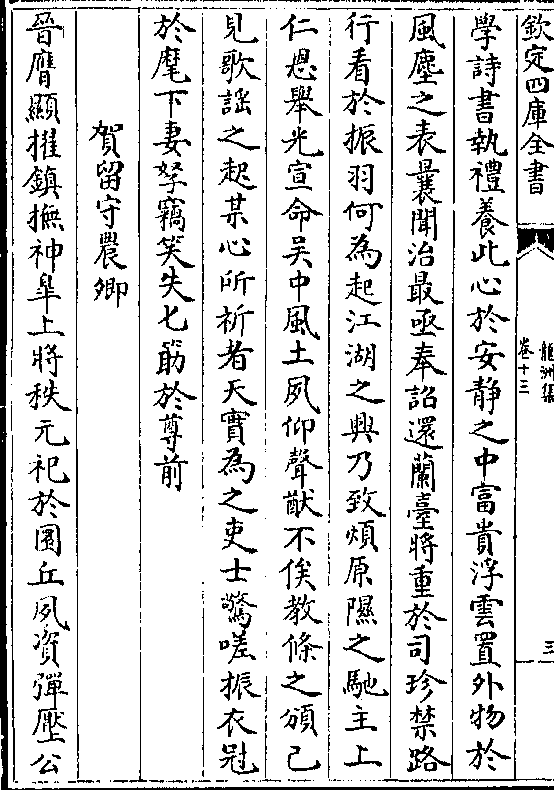 欽定四庫全書
龍洲集
卷十三
三
學詩書執禮養此心於安靜之中富貴浮雲置外物於
風塵之表曩聞治最亟奉詔還蘭臺將重於司珍禁路
行看於振羽何為起江湖之興乃致煩原隰之馳主上
仁恩舉光宣命吴中風土夙仰聲猷不俟教條之頒已
見歌謡之起某心所祈者天實為之吏士驚嗟振衣冠
於麾下妻孥竊笑失匕筯於尊前
賀留守農卿
晉膺顯擢鎮撫神臯上將秩元祀於圜丘夙資彈壓公